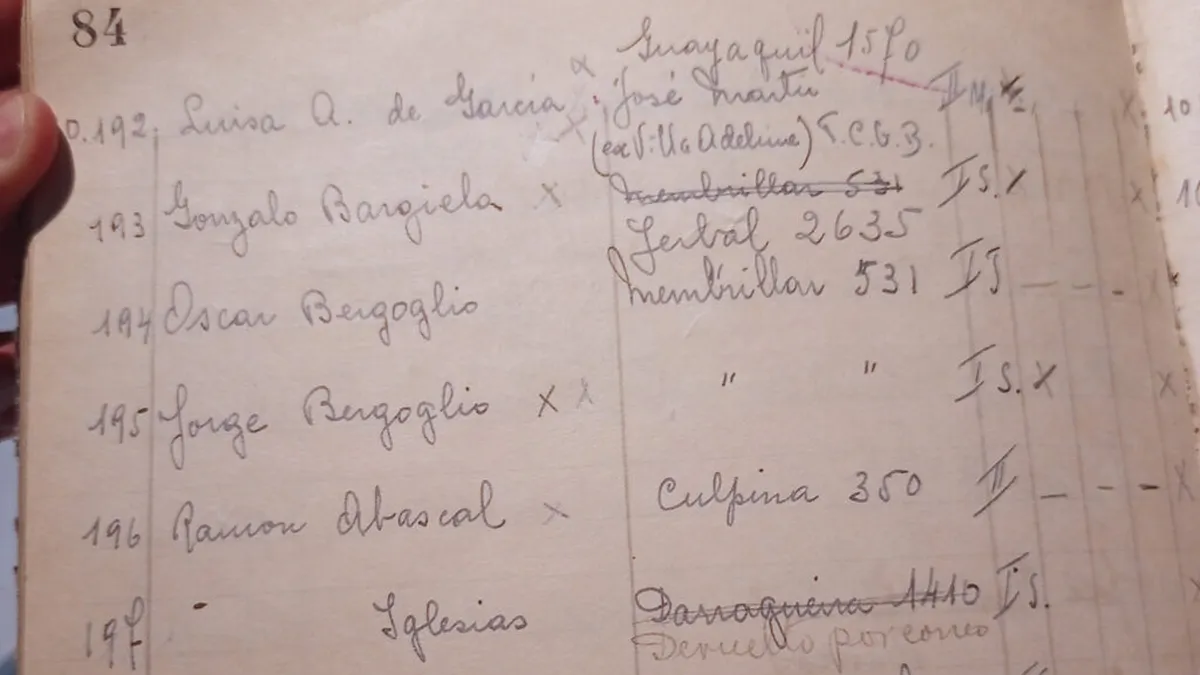 84
Guayaquil 1570
0.192 Luisa A. de García x José Martí II M.
(ex Villa Adelina) T.C.G.B.
193 Gonzalo Bargiela x Membrillar 531 I S. x x
Yerbal 2635
194 Oscar Bergoglio Membrillar 531 I S - - -
195 Jorge Bergoglio x x " " I S. x x
196 Ramon Abascal x Culpina 350 II - - - x
197 - Iglesias Darragueira 1410 I S.
Devuelto por correo